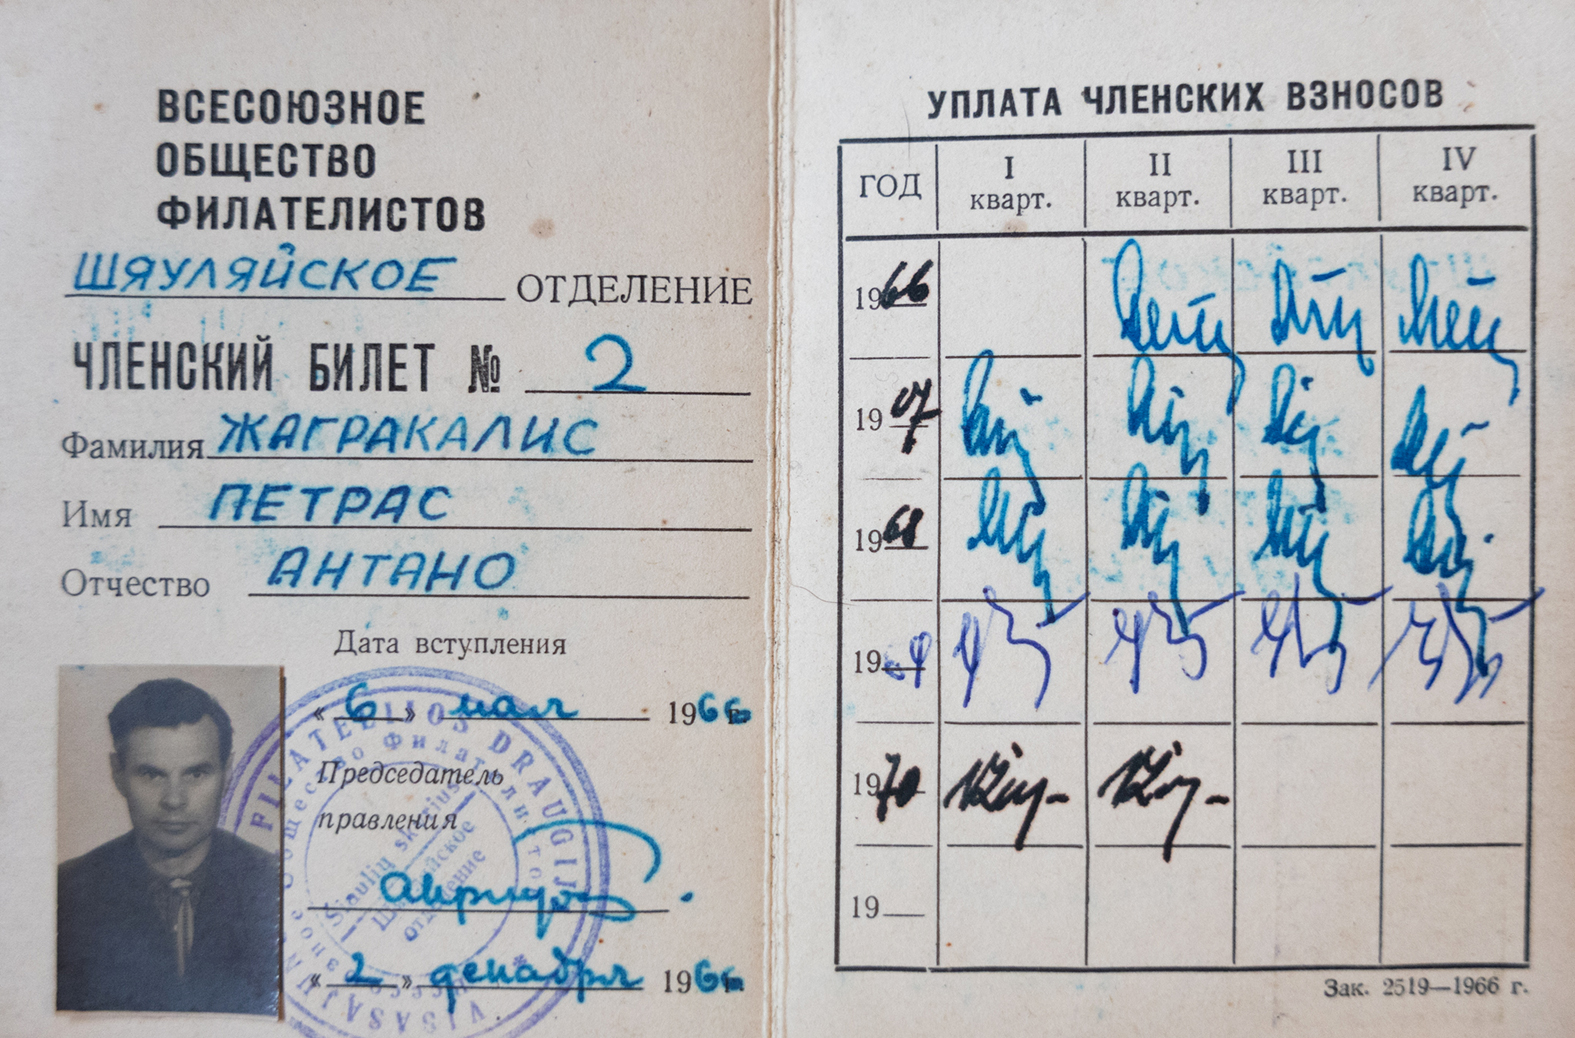 ВСЕСОЮЗНОЕ
ОБЩЕСТВО
ФИЛАТЕЛИСТОВ
ШЯУЛЯЙСКОЕ ОТДЕЛЕНИЕ
ЧЛЕНСКИЙ БИЛЕТ № 2
Фамилия ЖАГРАКАЛИС
Имя ПЕТРАС
Отчество АНТАНО
Дата вступления
« 6 » мая 1966 г.
Председатель
правления
« 2 » декабря 1966 г.
FILATELIJOS DRAUGIJ
VISASAJU
Общество Филателистов
Šiaulių skyrius
Шяуляйское
отделение
УПЛАТА ЧЛЕНСКИХ ВЗНОСОВ
ГОД I кварт. II кварт. III кварт. IV кварт.
1966
1967
1968
1969
1970
19
Зак. 2519—1966 г.